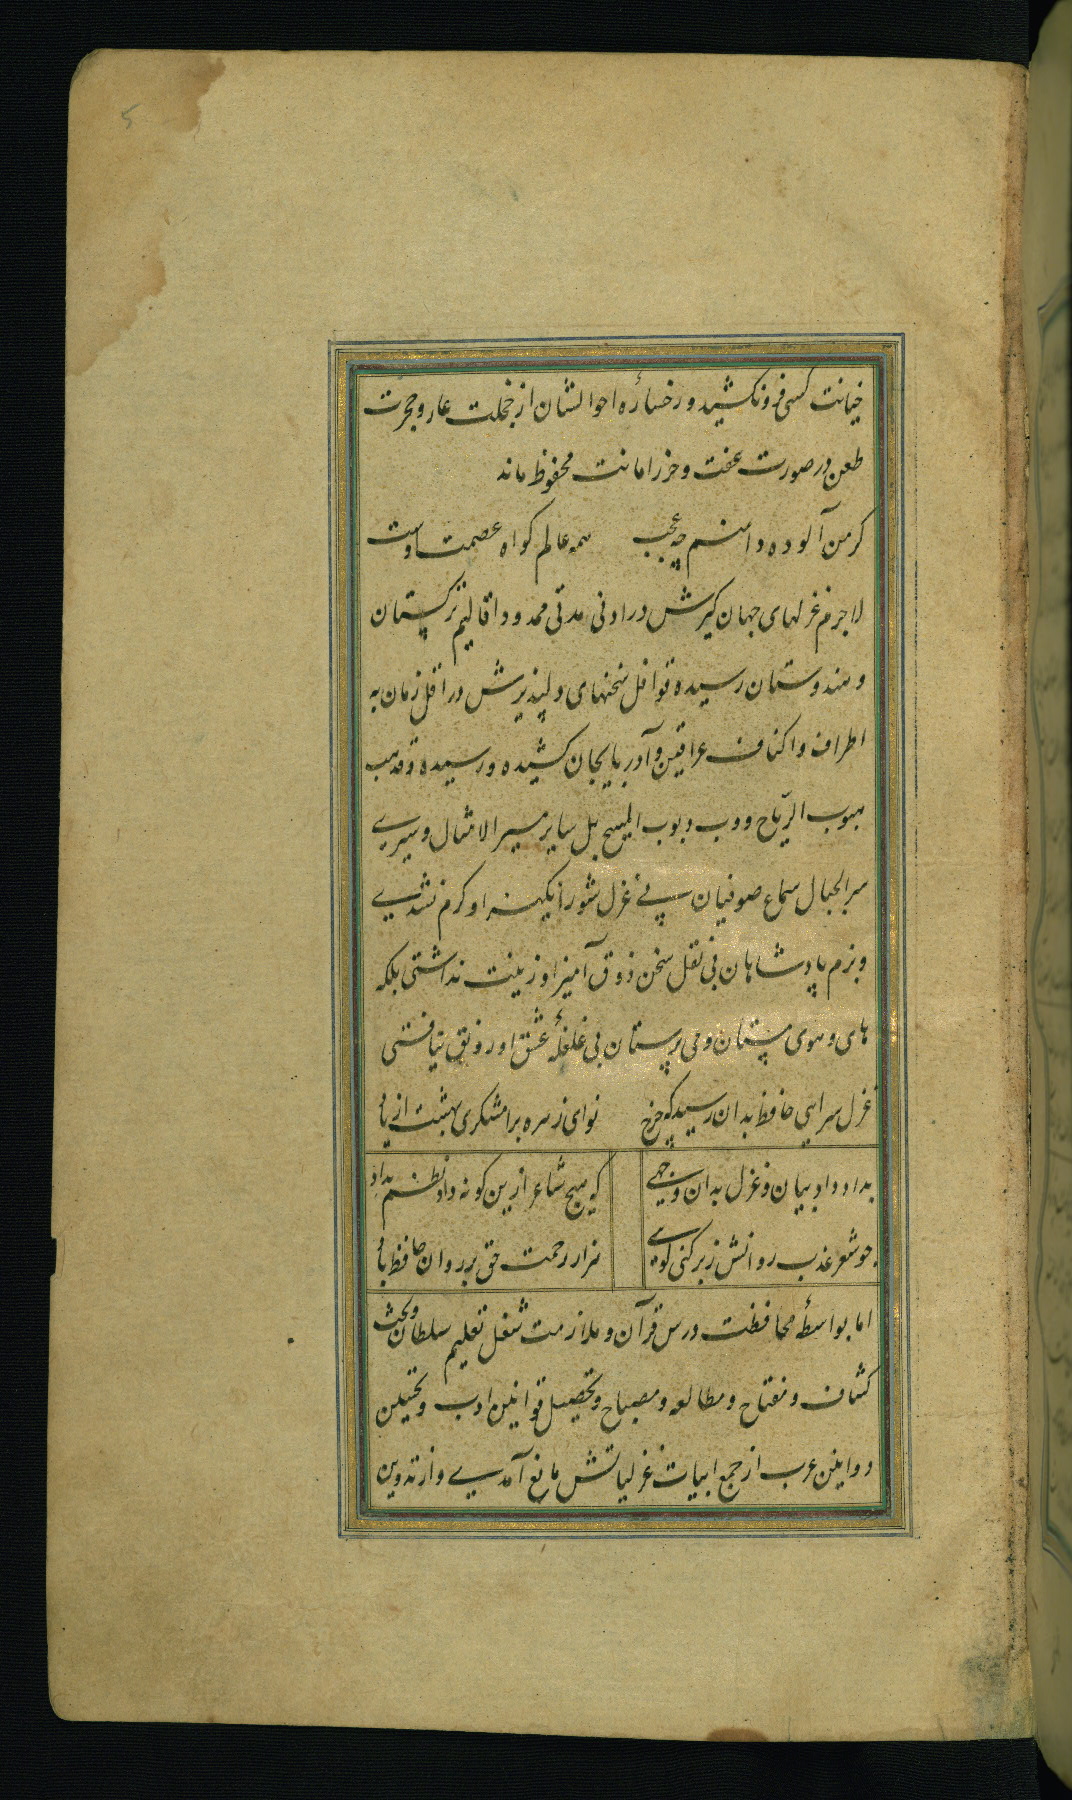 5
خیانت کسی فرو نکشید و رخسارهٔ احوالشان از خجلت عار و حجرت
طعن در صورت عفت و حرز امانت محفوظ ماند
کر من آلوده دامنم چه عجب همه عالم کواه عصمت اوست
لاجرم غزلهای جهان کیرش در ادنی مدتی محدود اقالیم ترکستان
و هندوستان رسیده قوافل سخنهای دلپذیرش در اقل زمان به
اطراف و اکناف عراقین و آدربایجان کشیده و رسیده قد هب
هبوب الریاح و دب دبوب المسیح بل سایر مسیر الامثال و سیری
سرالخیال سماع صوفیان بی غزل شورانکیز او کرم نشدی
و بزم پادشاهان بی نقل سخن ذوق آمیز او زینت نداشتی بلکه
های و هوی مشتاقان و می پرستان بی غلغلهٔ عشق او رونق نیافتی
غزل سرایی حافظ بدان رسید که چرخ نوای زهره برامشکری بهشت از یاد
بداد داد بیان در غزل بدان وجهی که هیچ شاعر ازین کونه داد نظم نداد
چو شعر عذب روانش زبر کنی کوی هزار رحمت حق بر روان حافظ باد
اما بواسطهٔ محافظت درس قرآن و ملازمت شغل تعلیم سلطان و بحث
کشاف و مفتاح و مطالعه و مصباح و تحصیل قوانین ادب و تحسین
دواوین عرب از جمع ابیات غزلیاتش مانع آمدی و از تدوین